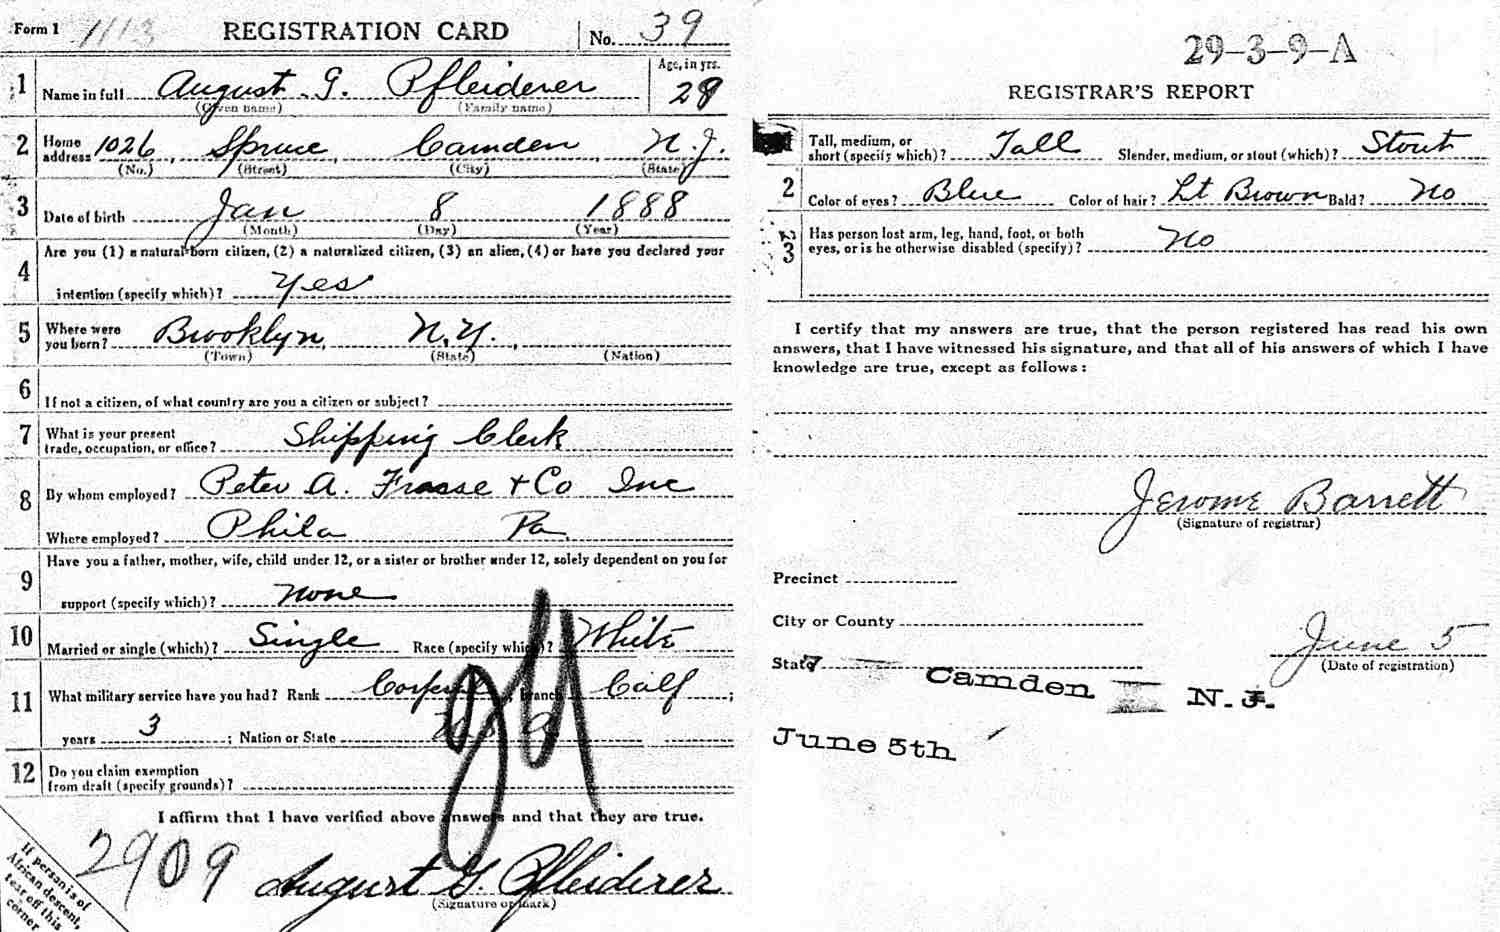 Form 1 1113 REGISTRATION CARD No. 39
1 Name in full August G. Pfleiderer Age, in yrs. 29
(Given name) (Family name)
2 Home address 1026 Spruce Camden N.J.
(No.) (Street) (City) (State)
3 Date of birth Jan 8 1888
(Month) (Day) (Year)
4 Are you (1) a natural-born citizen, (2) a naturalized citizen, (3) an alien, (4) or have you declared your
intention (specify which)? Yes
5 Where were you born? Brooklyn, N.Y.
(Town) (State) (Nation)
6 If not a citizen, of what country are you a citizen or subject?
7 What is your present trade, occupation, or office? Shipping Clerk
8 By whom employed? Peter A. Frasse + Co Inc
Where employed? Phila Pa
9 Have you a father, mother, wife, child under 12, or a sister or brother under 12, solely dependent on you for
support (specify which)? None
10 Married or single (which)? Single Race (specify which)? White
11 What military service have you had? Rank Corporal; branch
years 3; Nation or State
12 Do you claim exemption
from draft (specify grounds)?
I affirm that I have verified above answers and that they are true.
2909
August G. Pfleiderer
(Signature or mark)
If person is of
African descent,
tear off this
corner
29-3-9-A
REGISTRAR'S REPORT
Tall, medium, or short (specify which)? Tall Slender, medium, or stout (which)? Stout
2 Color of eyes? Blue Color of hair? Lt Brown Bald? No
3 Has person lost arm, leg, hand, foot, or both
eyes, or is he otherwise disabled (specify)? No
I certify that my answers are true, that the person registered has read his own
answers, that I have witnessed his signature, and that all of his answers of which I have
knowledge are true, except as follows:
Jerome Barrett
(Signature of registrar)
Precinct
City or County
State
June 5
(Date of registration)
Camden N.J.
June 5th